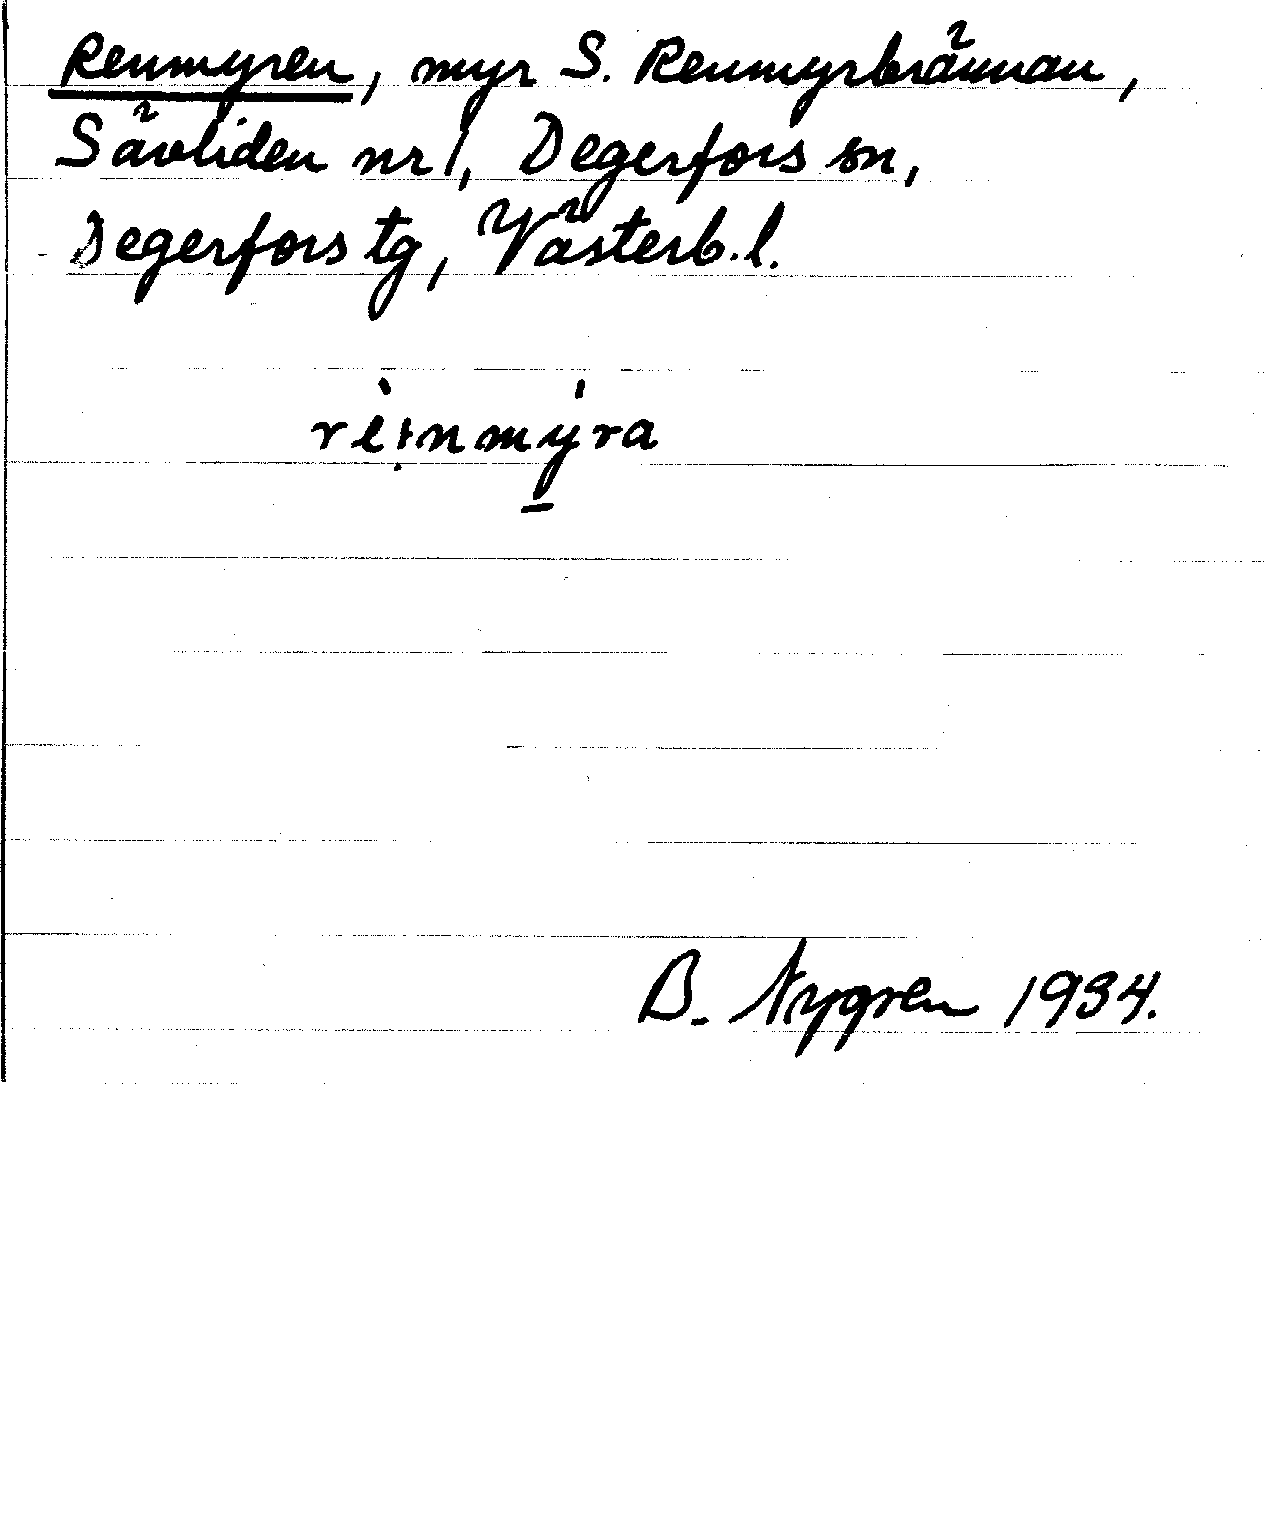 Renmyren, myr S. Renmyrbrännan,
Sävliden nr 1, Degerfors sn,
Degerfors tg, Västerb. l.
rèi̩nmý̠ra
B. Nygren 1934.